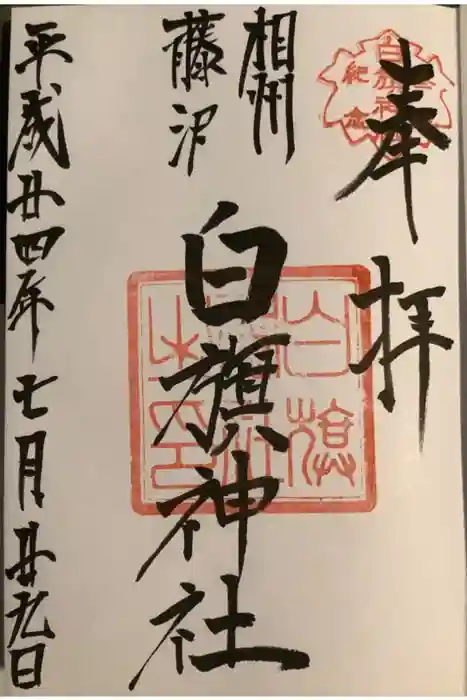 奉拝
白旗神社
紀念
相州
藤沢
白旗神社
白旗神社之印
平成廿四年七月廿九日